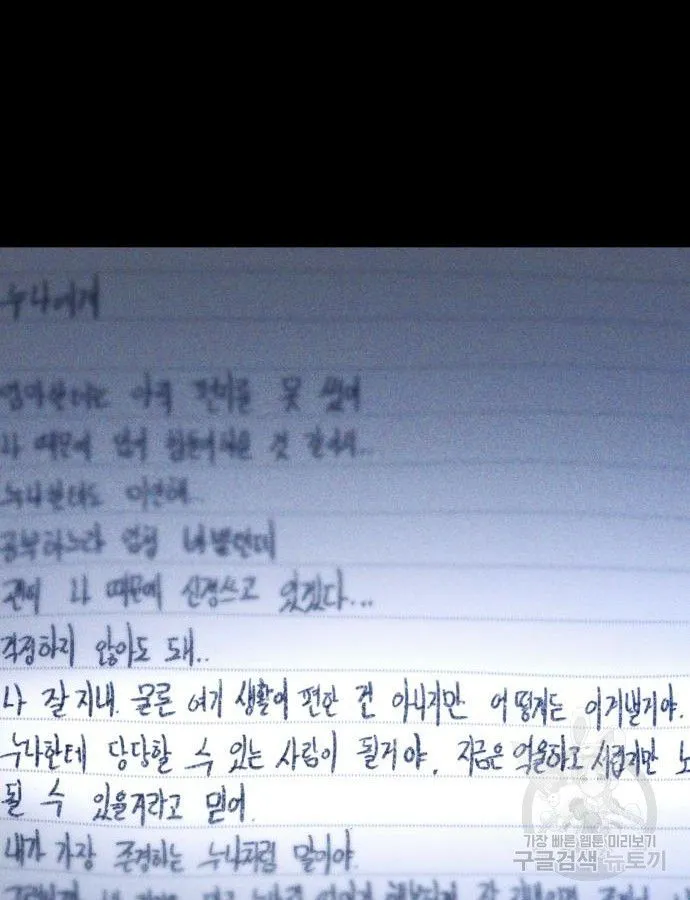 누나에게
엄마한테는 아직 편지를 못 썼어
나 때문에 많이 힘들어하실 것 같아서...
누나한테도 미안해..
공부하느라 엄청 바쁠텐데
괜히 나 때문에 신경쓰고 있겠다...
걱정하지 않아도 돼..
나 잘 지내. 물론 여기 생활이 편한 건 아니지만 어떻게든 이겨낼거야.
누나한테 당당할 수 있는 사람이 될거야. 지금은 억울하고 서럽지만
될 수 있을거라고 믿어.
내가 가장 존경하는 누나처럼 말이야.
가장 빠른 웹툰 미리보기
구글검색 뉴토끼